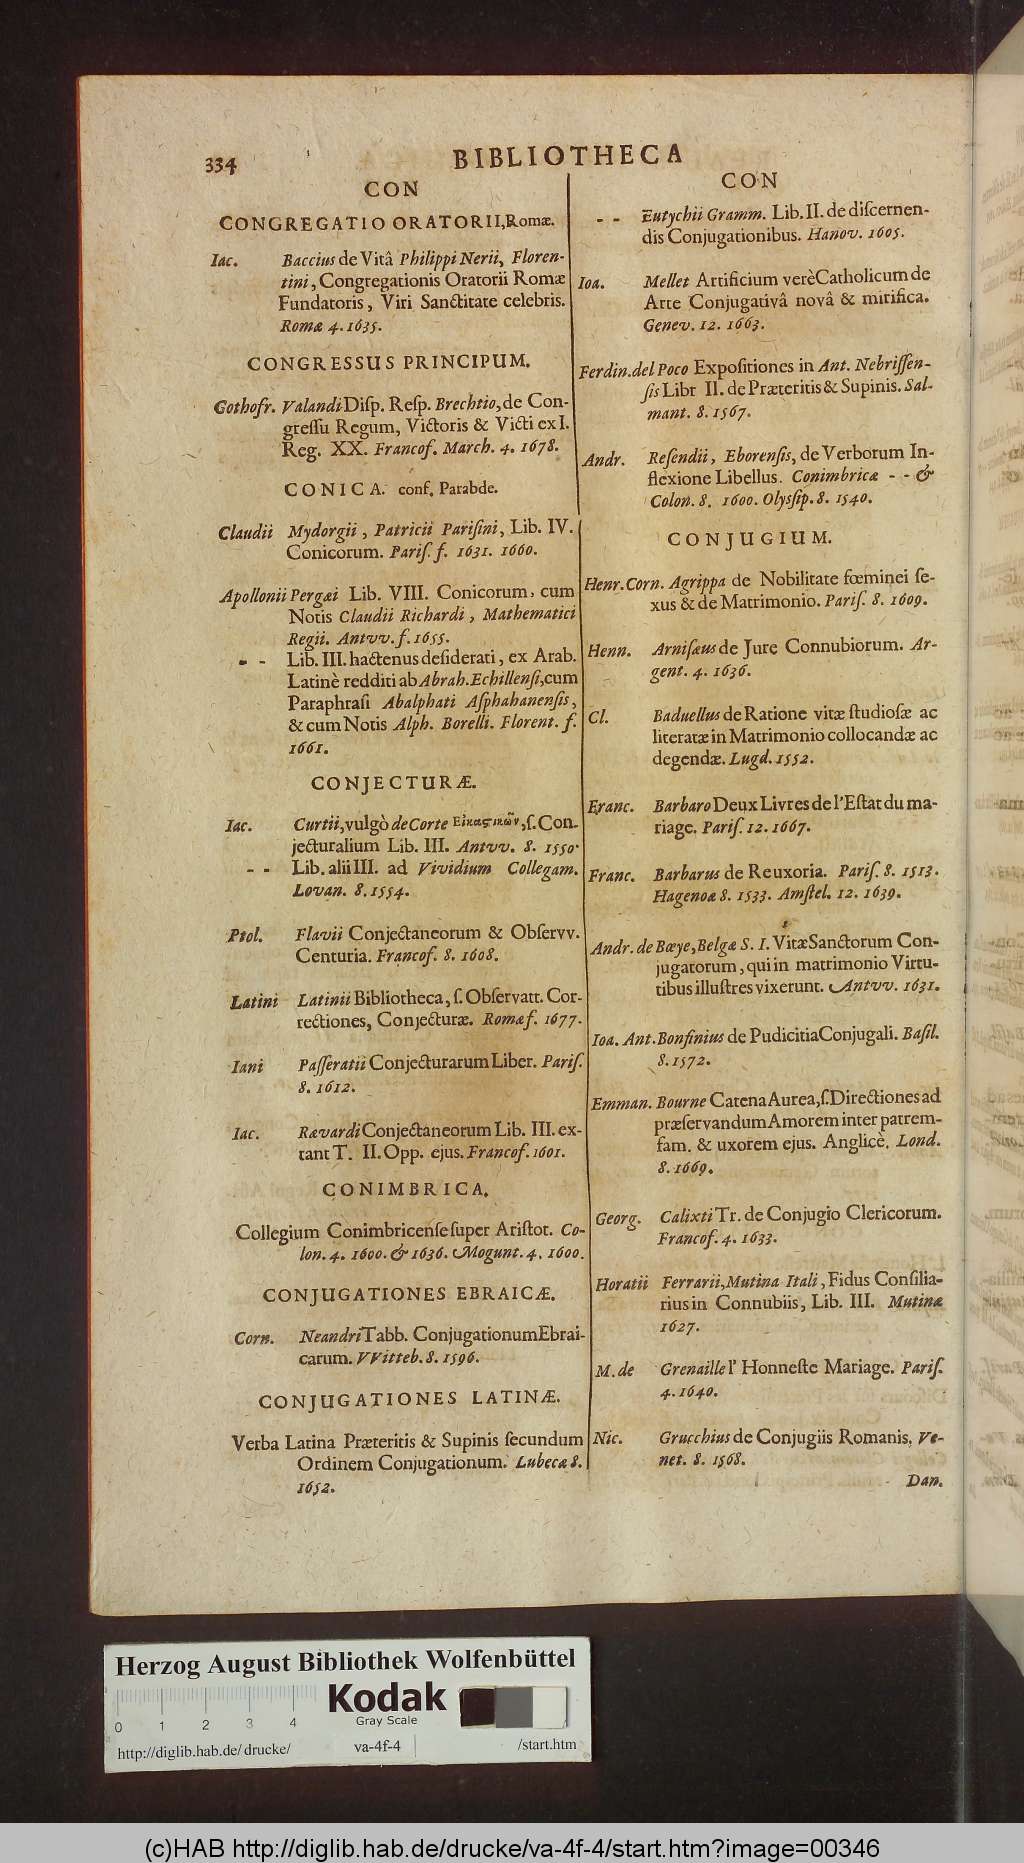 334
BIBLIOTHECA
CON
CONGREGATIO ORATORII, Romæ.
Iac. Baccius de Vitâ Philippi Nerii, Floren-
tini, Congregationis Oratorii Romæ
Fundatoris, Viri Sanctitate celebris.
Romæ 4. 1635.
CONGRESSUS PRINCIPUM.
Gothofr. Valandi Disp. Resp. Brechtio, de Con-
gressu Regum, Victoris & Victi ex I.
Reg. XX. Francof. March. 4. 1678.
CONICA. conf. Parabde.
Claudii Mydorgii, Patricii Parisini, Lib. IV.
Conicorum. Paris. f. 1631. 1660.
Apollonii Pergæi Lib. VIII. Conicorum, cum
Notis Claudii Richardi, Mathematici
Regii. Antvv. f. 1655.
- - Lib. III. hactenus desiderati, ex Arab.
Latinè redditi ab Abrah. Echillensi, cum
Paraphrasi Abalphati Asphahanensis,
& cum Notis Alph. Borelli. Florent. f.
1661.
CONJECTURÆ.
Iac. Curtii, vulgò de Corte Εἰκαστικῶν, s. Con-
jecturalium Lib. III. Antvv. 8. 1550.
- - Lib. alii III. ad Vividium Collegam.
Lovan. 8. 1554.
Ptol. Flavii Conjectaneorum & Observv.
Centuria. Francof. 8. 1608.
Latini Latinii Bibliotheca, s. Observatt. Cor-
rectiones, Conjecturæ. Romæ f. 1677.
Iani Passeratii Conjecturarum Liber. Paris.
8. 1612.
Iac. Rævardi Conjectaneorum Lib. III. ex-
tant T. II. Opp. ejus. Francof. 1601.
CONIMBRICA.
Collegium Conimbricense super Aristot. Co-
lon. 4. 1600. & 1636. Mogunt. 4. 1600.
CONJUGATIONES EBRAICÆ.
Corn. Neandri Tabb. Conjugationum Ebrai-
carum. VVitteb. 8. 1596.
CONJUGATIONES LATINÆ.
Verba Latina Præteritis & Supinis secundum
Ordinem Conjugationum. Lubecæ 8.
1652.
CON
- - Eutychii Gramm. Lib. II. de discernen-
dis Conjugationibus. Hanov. 1605.
Ioa. Mellet Artificium verè Catholicum de
Arte Conjugativâ novâ & mirifica.
Genev. 12. 1663.
Ferdin. del Poco Expositiones in Ant. Nebrissen-
sis Libr II. de Præteritis & Supinis. Sal-
mant. 8. 1567.
Andr. Resendii, Eborensis, de Verborum In-
flexione Libellus. Conimbricæ - - &
Colon. 8. 1600. Olyssip. 8. 1540.
CONJUGIUM.
Henr. Corn. Agrippa de Nobilitate fœminei se-
xus & de Matrimonio. Paris. 8. 1609.
Henn. Arnisæus de Jure Connubiorum. Ar-
gent. 4. 1636.
Cl. Baduellus de Ratione vitæ studiosæ ac
literatæ in Matrimonio collocandæ ac
degendæ. Lugd. 1552.
Franc. Barbaro Deux Livres de l'Estat du ma-
riage. Paris. 12. 1667.
Franc. Barbarus de Reuxoria. Paris. 8. 1513.
Hagenoæ 8. 1533. Amstel. 12. 1639.
Andr. de Bœye, Belgæ S. I. Vitæ Sanctorum Con-
jugatorum, qui in matrimonio Virtu-
tibus illustres vixerunt. Antvv. 1631.
Ioa. Ant. Bonfinius de Pudicitia Conjugali. Basil.
8. 1572.
Emman. Bourne Catena Aurea, s. Directiones ad
præservandum Amorem inter patrem-
fam. & uxorem ejus. Anglicè. Lond.
8. 1669.
Georg. Calixti Tr. de Conjugio Clericorum.
Francof. 4. 1633.
Horatii Ferrarii, Mutina Itali, Fidus Consilia-
rius in Connubiis, Lib. III. Mutinæ
1627.
M. de Grenaille l' Honneste Mariage. Paris.
4. 1640.
Nic. Grucchius de Conjugiis Romanis. Ve-
net. 8. 1568.
Dan.
Herzog August Bibliothek Wolfenbüttel
Kodak
Gray Scale
0 1 2 3 4
http://diglib.hab.de/drucke/ va-4f-4 /start.htm
(c)HAB http://diglib.hab.de/drucke/va-4f-4/start.htm?image=00346